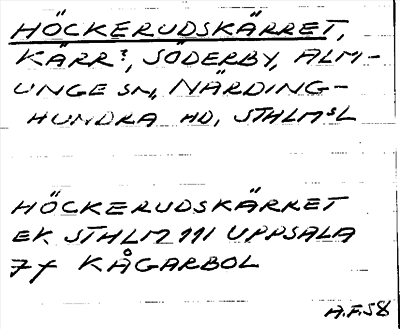 HÖCKERUDSKÄRRET,
KÄRR?, SÖDERBY, ALM-
UNGE SN, NÄRDING-
HUNDRA HD, STHLMSL
HÖCKERUDSKÄRRET
EK STHLM 111 UPPSALA
7f KÅGARBOL
A.F.58